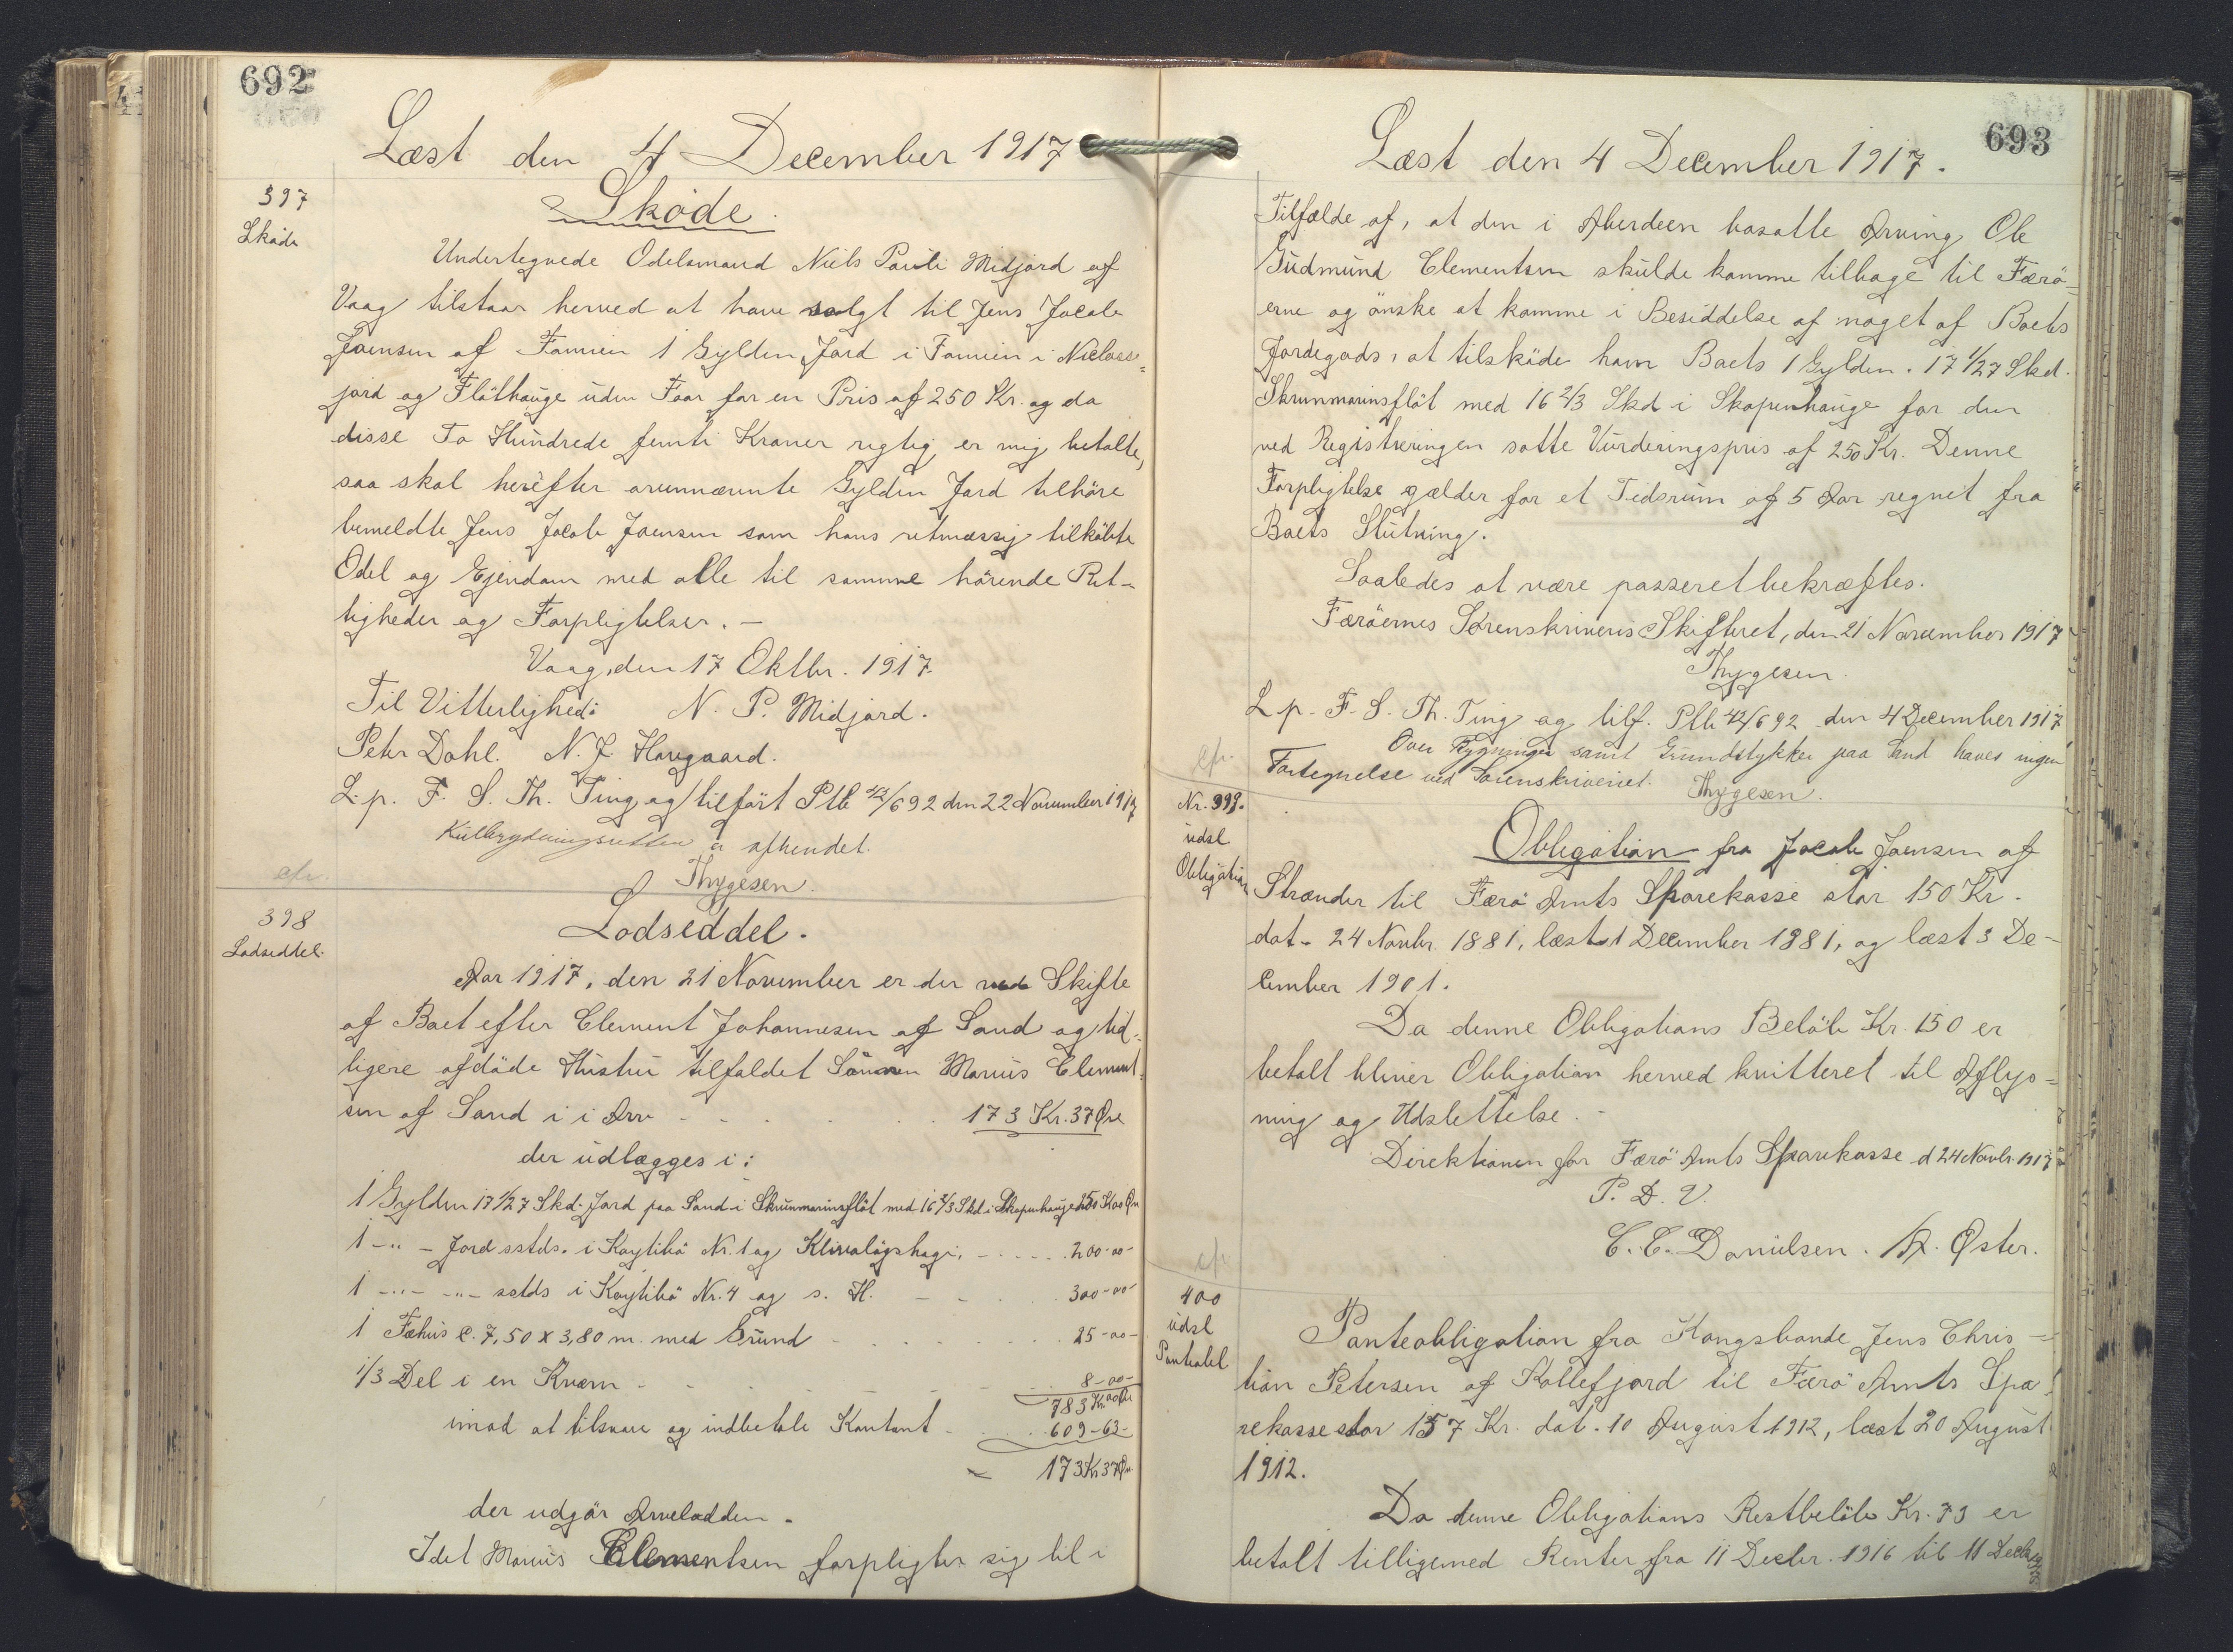 692
Læst den 4 December 1917
397
Skøde
Sköde.
Undertegnede Odelsmand Niels Pauli Midjord af
Vaag tilstaar herved at have solgt til Jens Jacob
Joensen af Famien 1 Gylden Jord i Famien i Niclass=
jord og Flöthauge uden Faar for en Pris af 250 Kr. og da
disse To Hundrede femti Kroner rigtig er mig betalte,
saa skal herefter ovennævnte Gylden Jord tilhöre
bemeldte Jens Jacob Joensen som hans retmæssig tilköbte
Odel og Ejendom med alle til samme hörende Ret-
tigheder og Forpligtelser. -
Vaag, den 17 Oktbr. 1917.
Til Vitterlighed: N. P. Midjord.
Peter Dahl. N. J. Hovgaard.
L. p. F. S. Th. Ting og tilfört Ptb 42/692 den 22 November 1917
Kulbrydningsretten er afhendet.
Thygesen.
cfr.
398
Lodseddel.
Lodseddel.
Aar 1917, den 21 November er der ved Skifte
af Boet efter Clement Johannesen af Sand og tid-
ligere afdöde Hustru tilfaldet Sönnen Marius Clement-
sen af Sand i i Arv - . . . 173 Kr. 37 Øre
der udlægges i:
1 Gylden 17 1/27 Skd. Jord paa Sand i Skrunmarinsflöt med 16 2/3 Skd. i Skopunhauge 250 Kr 00 Øre
1 -"- Jord sstds. i Kaytibö Nr. 1 og Klivalögshagi. - . . . 200-00-
1 -"- -"- sstds i Kaytibö Nr. 4 og s. H. - - . . 300-00-
1 Fæhus c. 7,50 x 3,80 m. med Grund - . . . 25-00-
1/3 Del i en Kværn - - - - 8-00-
783 Kr 00 Øre
imod at tilsvare og indbetale Kontant - . . 609-63-
173 Kr 37 Øre
der udgör Arvelodden.
Idet Marius Clementsen forpligter sig til i
693
Læst den 4 December 1917.
Tilfælde af, at den i Aberdeen bosatte Arving Ole
Gudmund Clementsen skulde komme tilbage til Færö=
erne og önske at komme i Besiddelse af noget af Boets
Jordegods, at tilsköde ham Boets 1 Gylden. 17 1/27 Skd.
Skrunmarinsflöt med 16 2/3 Skd i Skopunhauge for den
ved Registreringen satte Vurderingspris af 250 Kr. Denne
Forpligtelse gælder for et Tidsrum af 5 Aar regnet fra
Boets Slutning.
Saaledes at være passeret bekræftes.
Færöernes Sorenskriveris Skifteret, den 21 November 1917
Thygesen.
L. p. F. S. Th. Ting og tilf. Ptb 42/692 den 4 December 1917
Over Bygninger samt Grundstykker paa Sand haves ingen
Fortegnelse ved Sorenskriveriet. Thygesen.
cfr.
Nr. 399.
udsl
Obligation
Obligation fra Jacob Joensen af
Strænder til Færö Amts Sparekasse stor 150 Kr.
dat. 24 Novbr. 1881, læst 1 December 1881, og læst 3 De-
cember 1901.
Da denne Obligations Belöb Kr. 150 er
betalt bliver Obligation herved kvitteret til Aflys=
ning og Udslettelse. -
Direktionen for Færö Amts Sparekasse d 24 Novbr. 1917
P. D. V.
C. C. Danielsen. A. Øster.
cfr
400
udsl
Panteobl
Panteobligation fra Kongsbonde Jens Chris=
tian Petersen af Kollefjord til Færö Amts Spa-
rekasse stor 157 Kr. dat. 10 August 1912, læst 20 August
1912.
Da denne Obligations Restbelöb Kr. 73 er
betalt tilligemed Renter fra 11 Decbr. 1916 til 11 Decbr